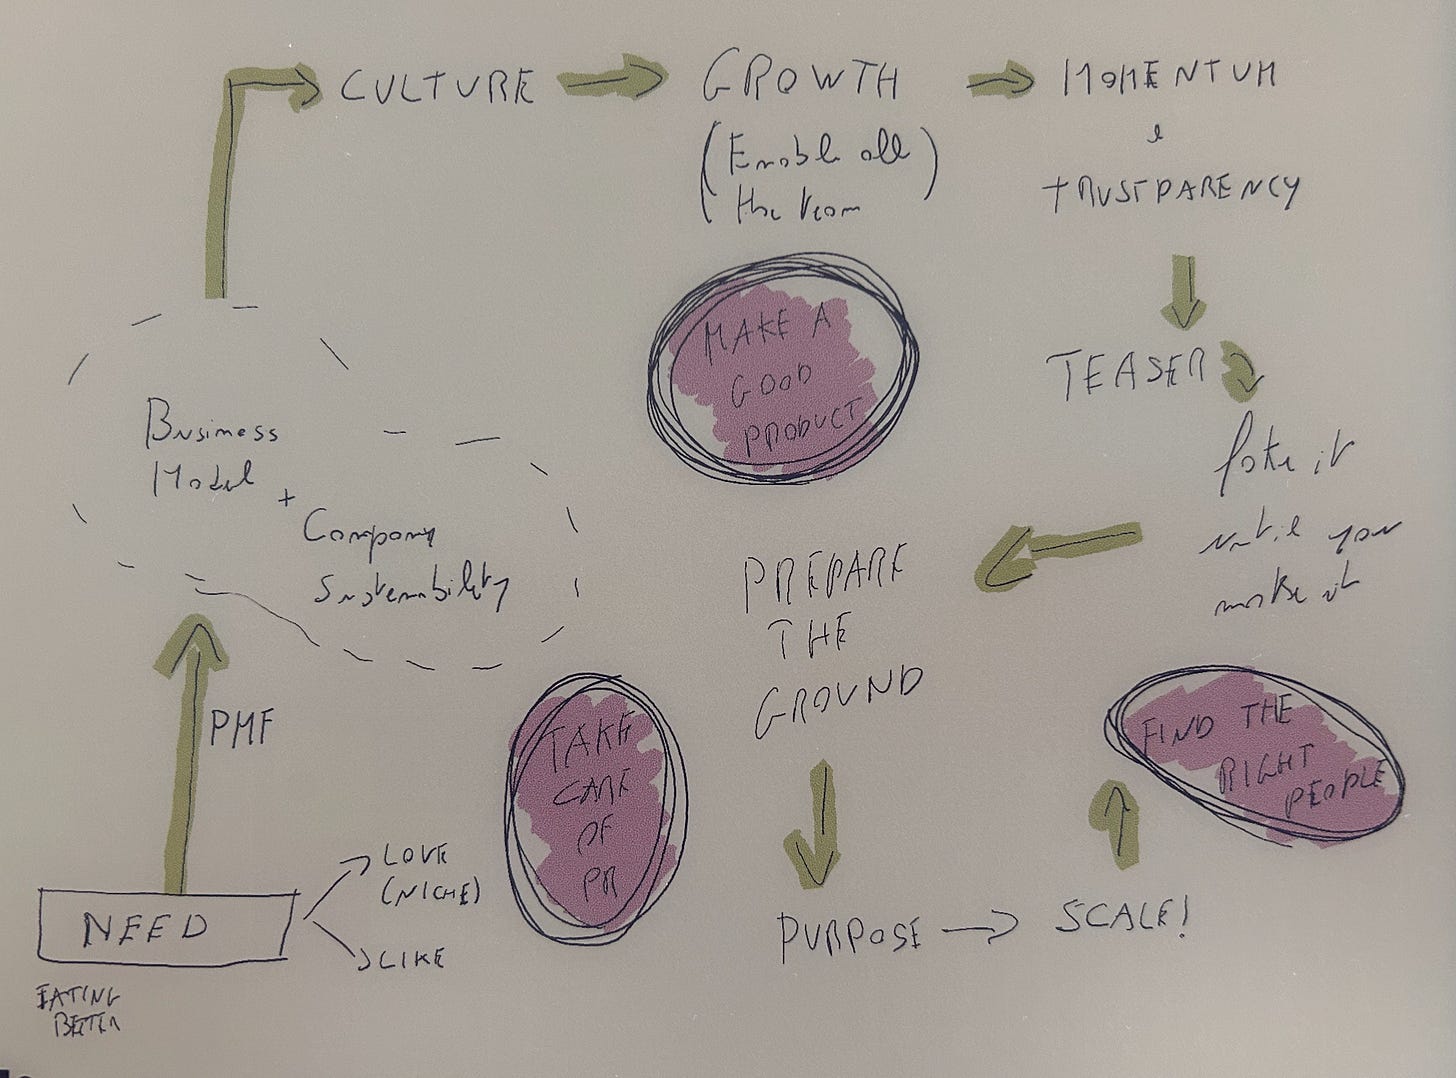 CULTURE
GROWTH
(Enable all
the team)
MOMENTUM
&
TRUSTPARENCY
TEASER
fake it
until you
make it
MAKE A
GOOD
PRODUCT
Business
Model
+
Company
Sustenability
PREPARE
THE
GROUND
PMF
TAKE
CARE
OF
PR
FIND THE
RIGHT
PEOPLE
NEED
LOVE
(NICHE)
LIKE
EATING
BETTER
PURPOSE
SCALE!